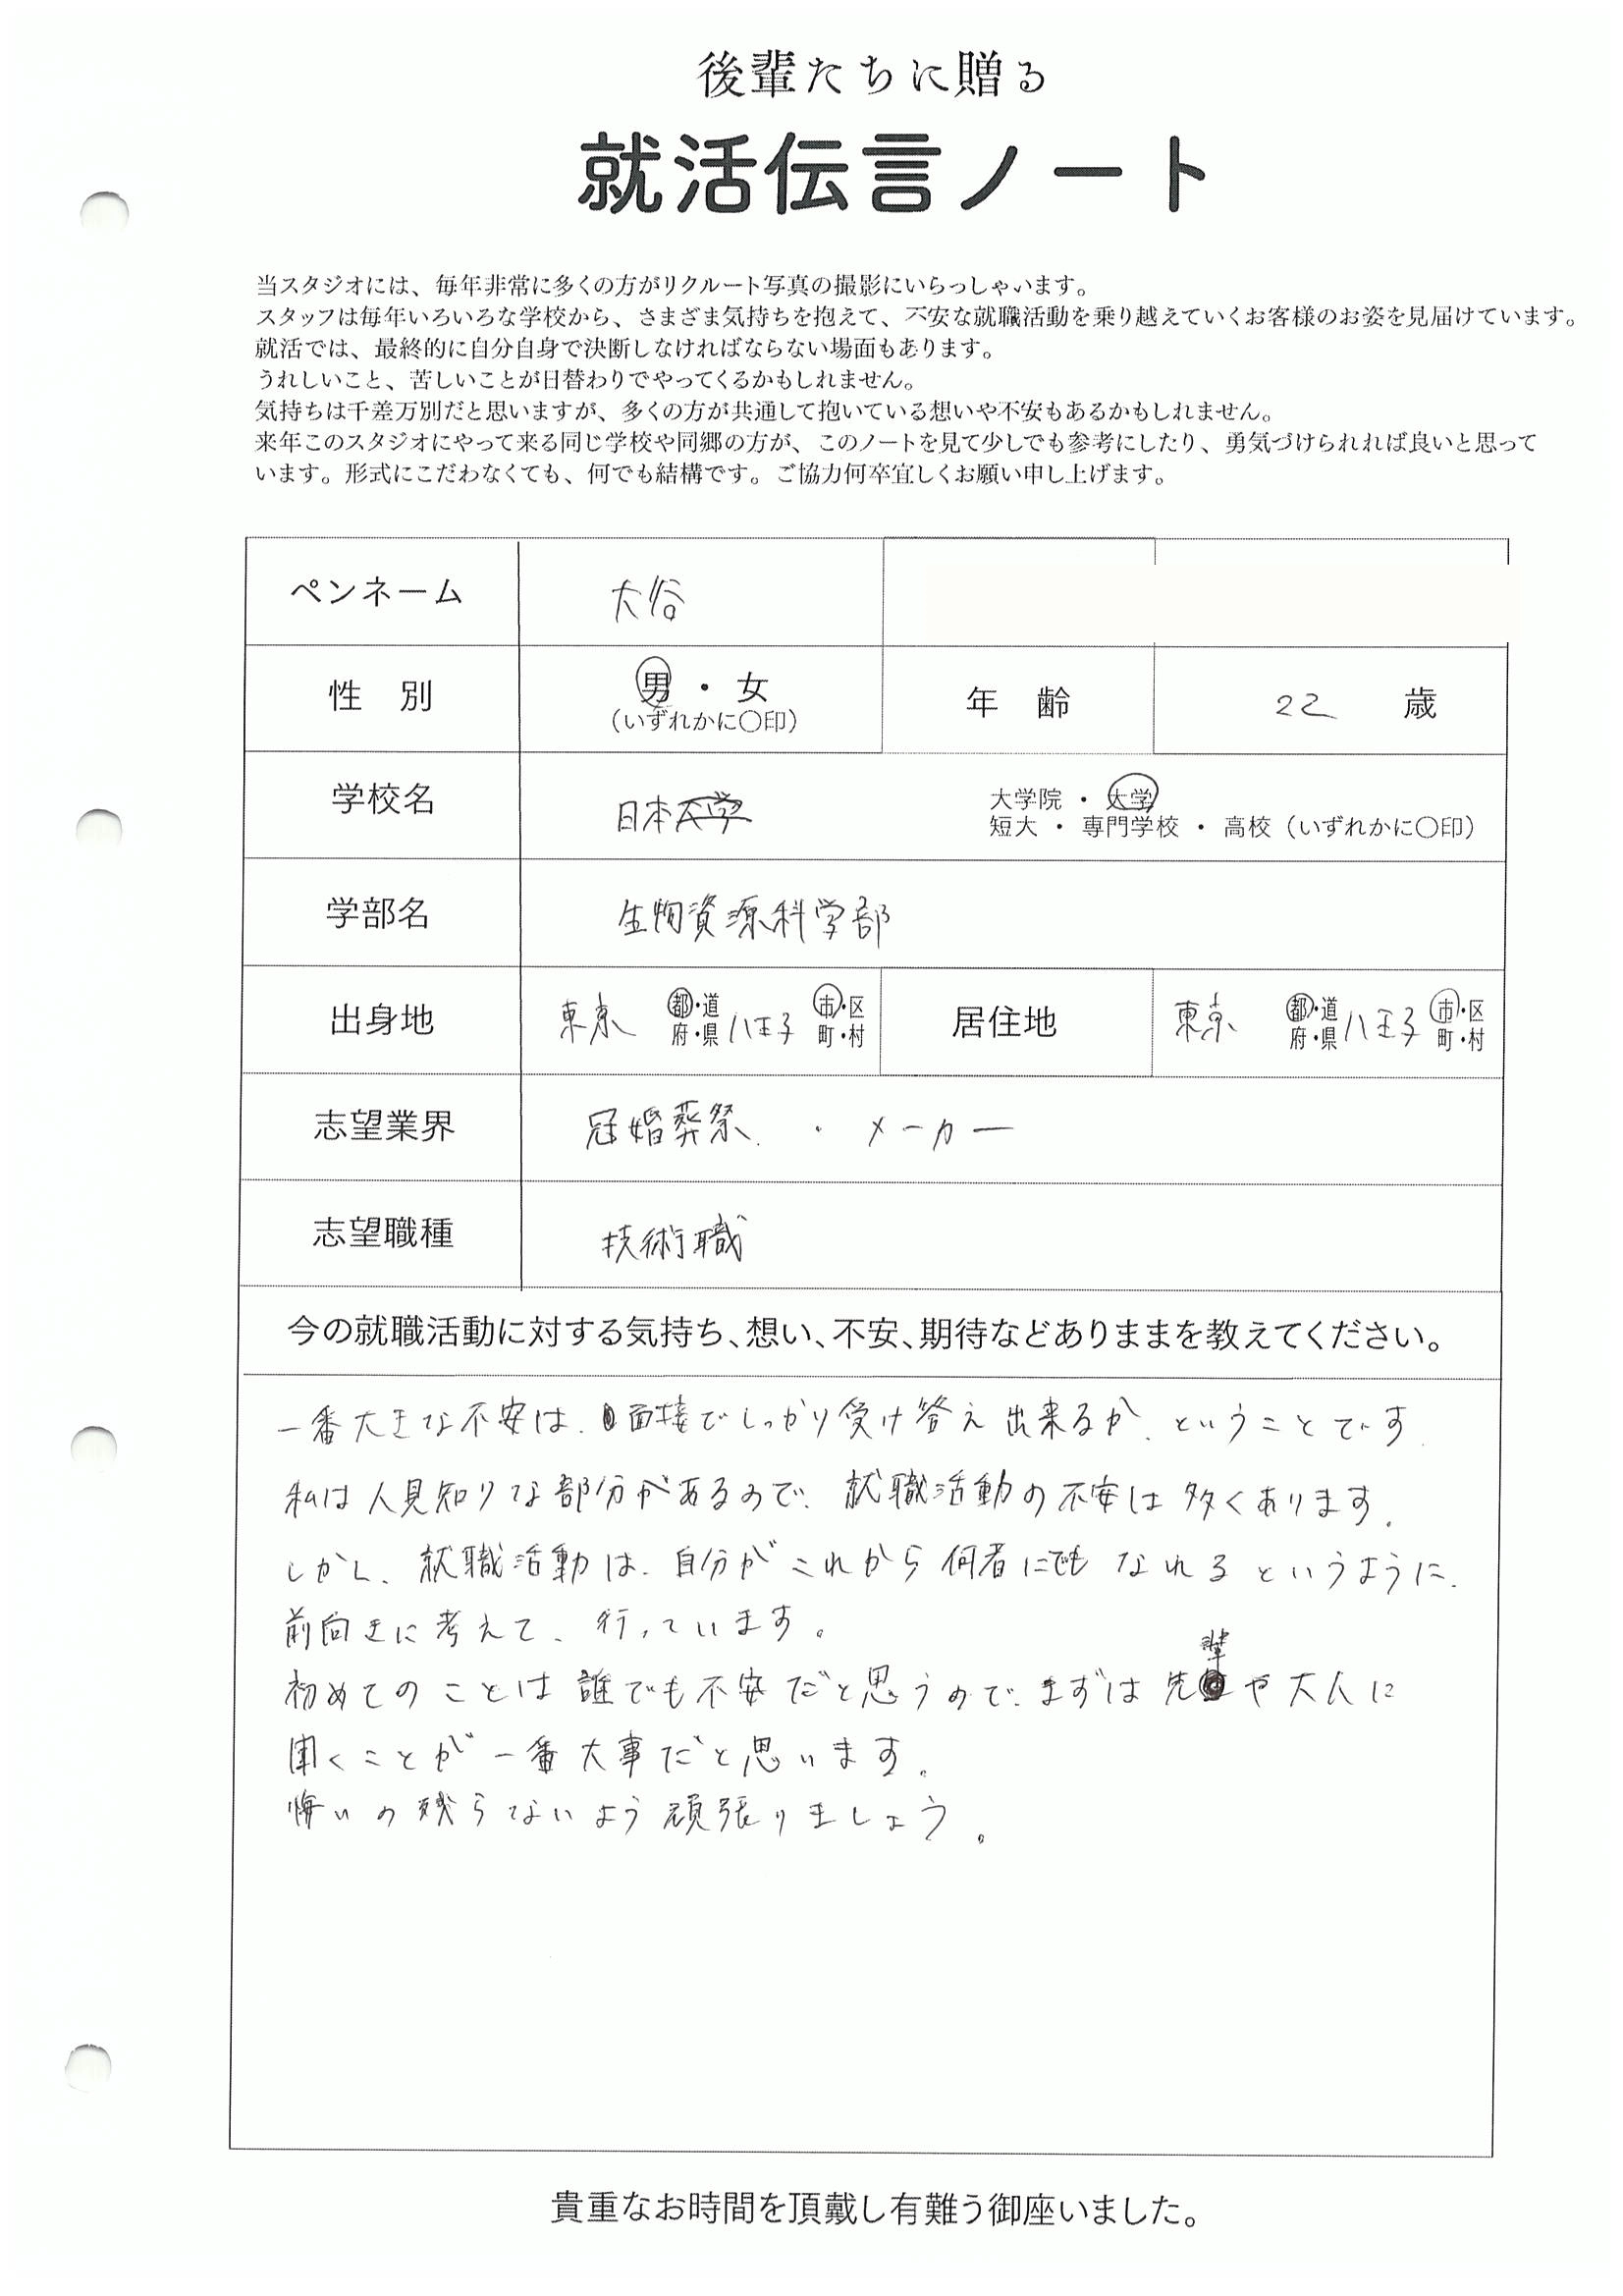 後輩たちに贈る
就活伝言ノート
当スタジオには、毎年非常に多くの方がリクルート写真の撮影にいらっしゃいます。
スタッフは毎年いろいろな学校から、さまざま気持ちを抱えて、不安な就職活動を乗り越えていくお客様のお姿を見届けています。
就活では、最終的に自分自身で決断しなければならない場面もあります。
うれしいこと、苦しいことが日替わりでやってくるかもしれません。
気持ちは千差万別だと思いますが、多くの方が共通して抱いている想いや不安もあるかもしれません。
来年このスタジオにやって来る同じ学校や同郷の方が、このノートを見て少しでも参考にしたり、勇気づけられれば良いと思って
います。形式にこだわなくても、何でも結構です。ご協力何卒宜しくお願い申し上げます。
ペンネーム 大谷
性 別 男 ・ 女 年 齢 22 歳
(いずれかに〇印)
学校名 日本大学 大学院 ・ 大学
短大 ・ 専門学校 ・ 高校 (いずれかに〇印)
学部名 生物資源科学部
出身地 東京 都・道 八王子 市・区 居住地 東京 都・道 八王子 市・区
府・県 町・村 府・県 町・村
志望業界 冠婚葬祭 ・ メーカー
志望職種 技術職
今の就職活動に対する気持ち、想い、不安、期待などありままを教えてください。
一番大きな不安は、面接でしっかり受け答え出来るか、ということです
私は人見知りな部分があるので、就職活動の不安は多くあります。
しかし、就職活動は、自分がこれから何者にでもなれるというように、
前向きに考えて、行っています。
初めてのことは誰でも不安だと思うので、まずは先輩や大人に
聞くことが一番大事だと思います。
悔いの残らないよう頑張りましょう。
貴重なお時間を頂戴し有難う御座いました。